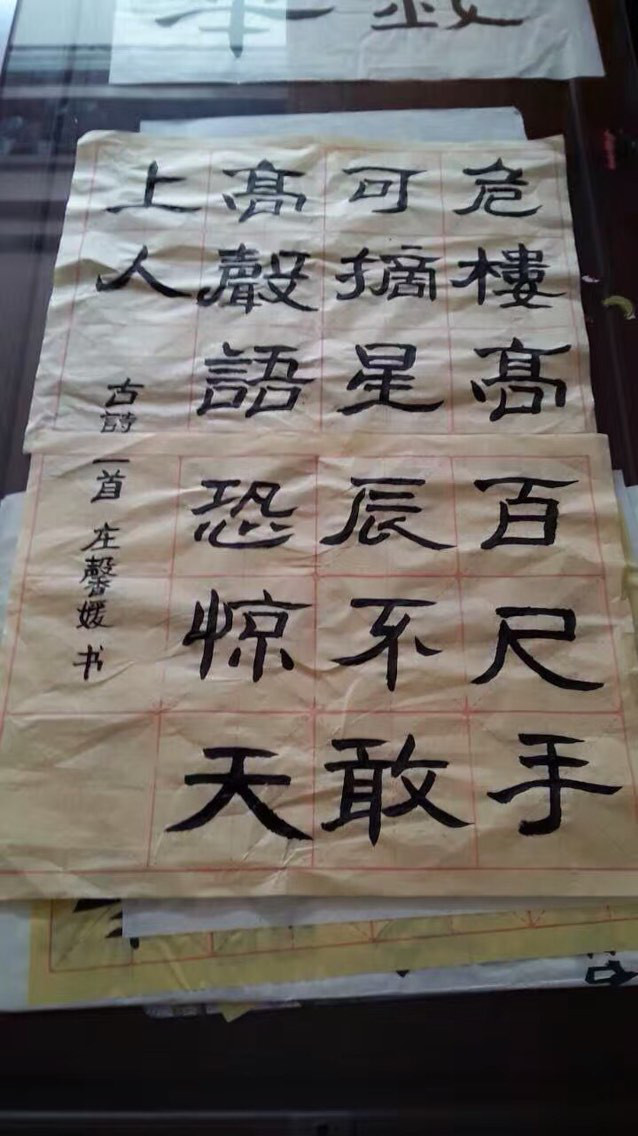 危樓髙百尺手
可摘星辰不敢
髙聲語恐惊天
上人
古詩一首 庄馨媛书